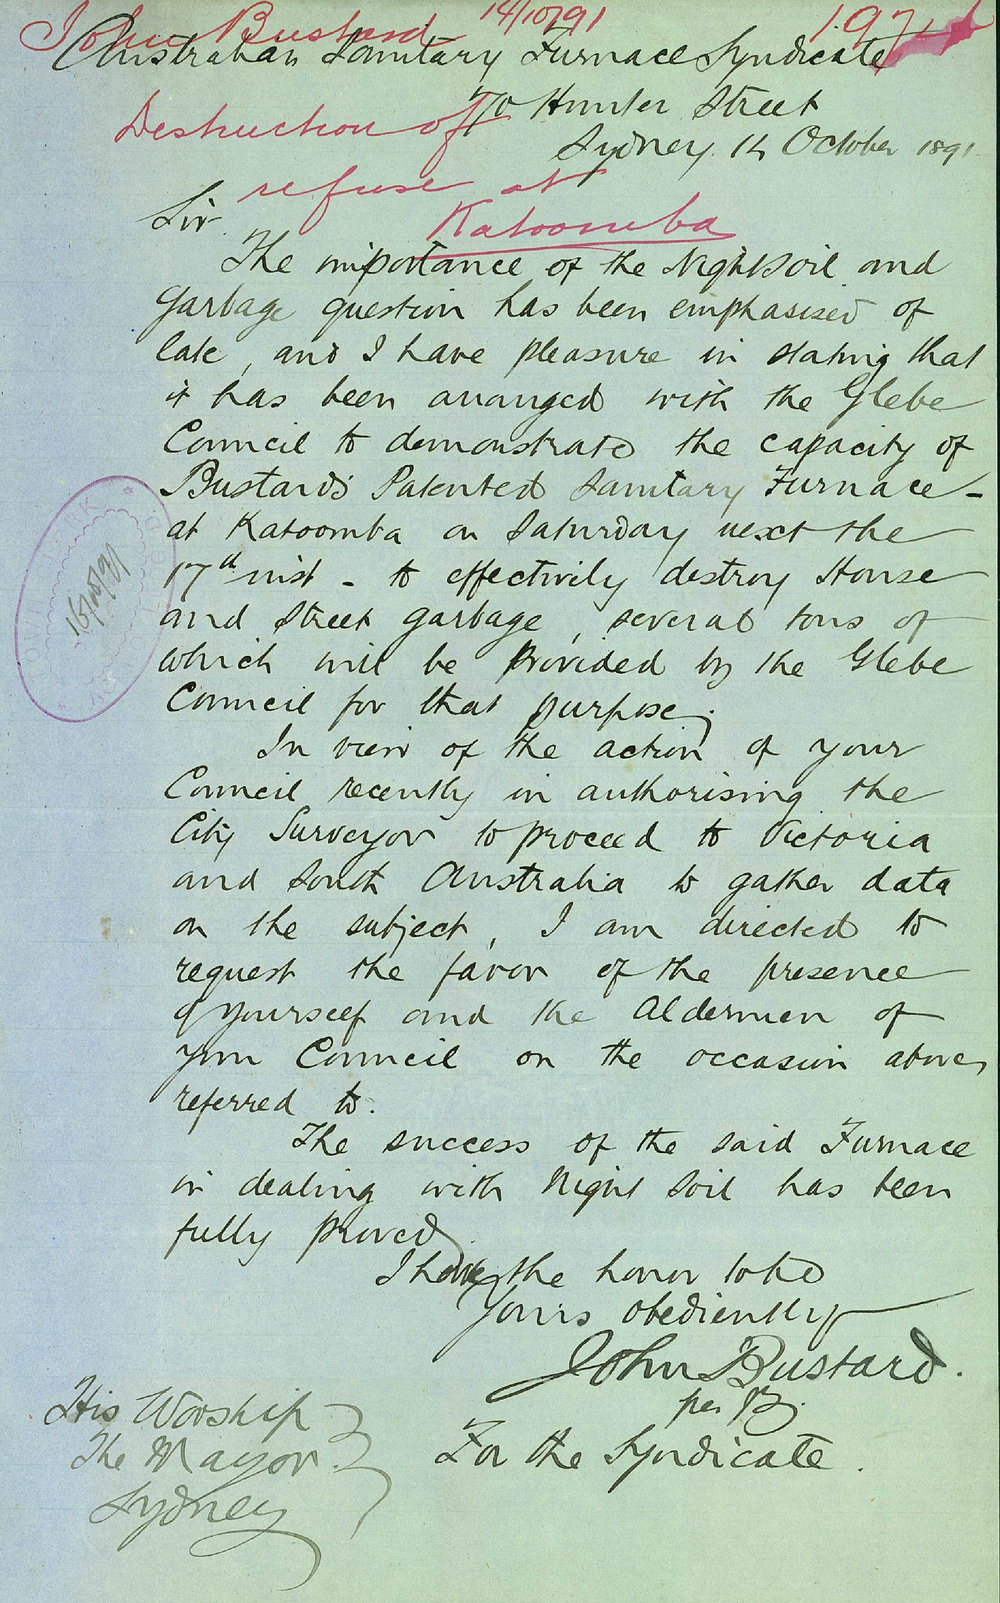 John Bustard 14/10/91
Australian Sanitary Furnace Syndicate
70 Hunter Street
Destruction of
Sydney 14 October 1891
refuse at
Katoomba
Sir
The importance of the Nightsoil and
Garbage question has been emphasised of
late, and I have pleasure in stating that
it has been arranged with the Glebe
Council to demonstrate the capacity of
Bustards Patented Sanitary Furnace -
at Katoomba on Saturday next the
17th inst - to effectively destroy House
and Street garbage, several tons of
which will be provided by the Glebe
Council for that purpose.
In view of the action of your
Council recently in authorising the
City Surveyor to proceed to Victoria
and South Australia to gather data
on the subject, I am directed to
request the favor of the presence
of yourself and the Aldermen of
your Council on the occasion above
referred to.
The success of the said Furnace
in dealing with Night Soil has been
fully proved
I have the honor to be
Yours obediently
John Bustard.
per B.
For the Syndicate.
His Worship
The Mayor
Sydney
16/10/91